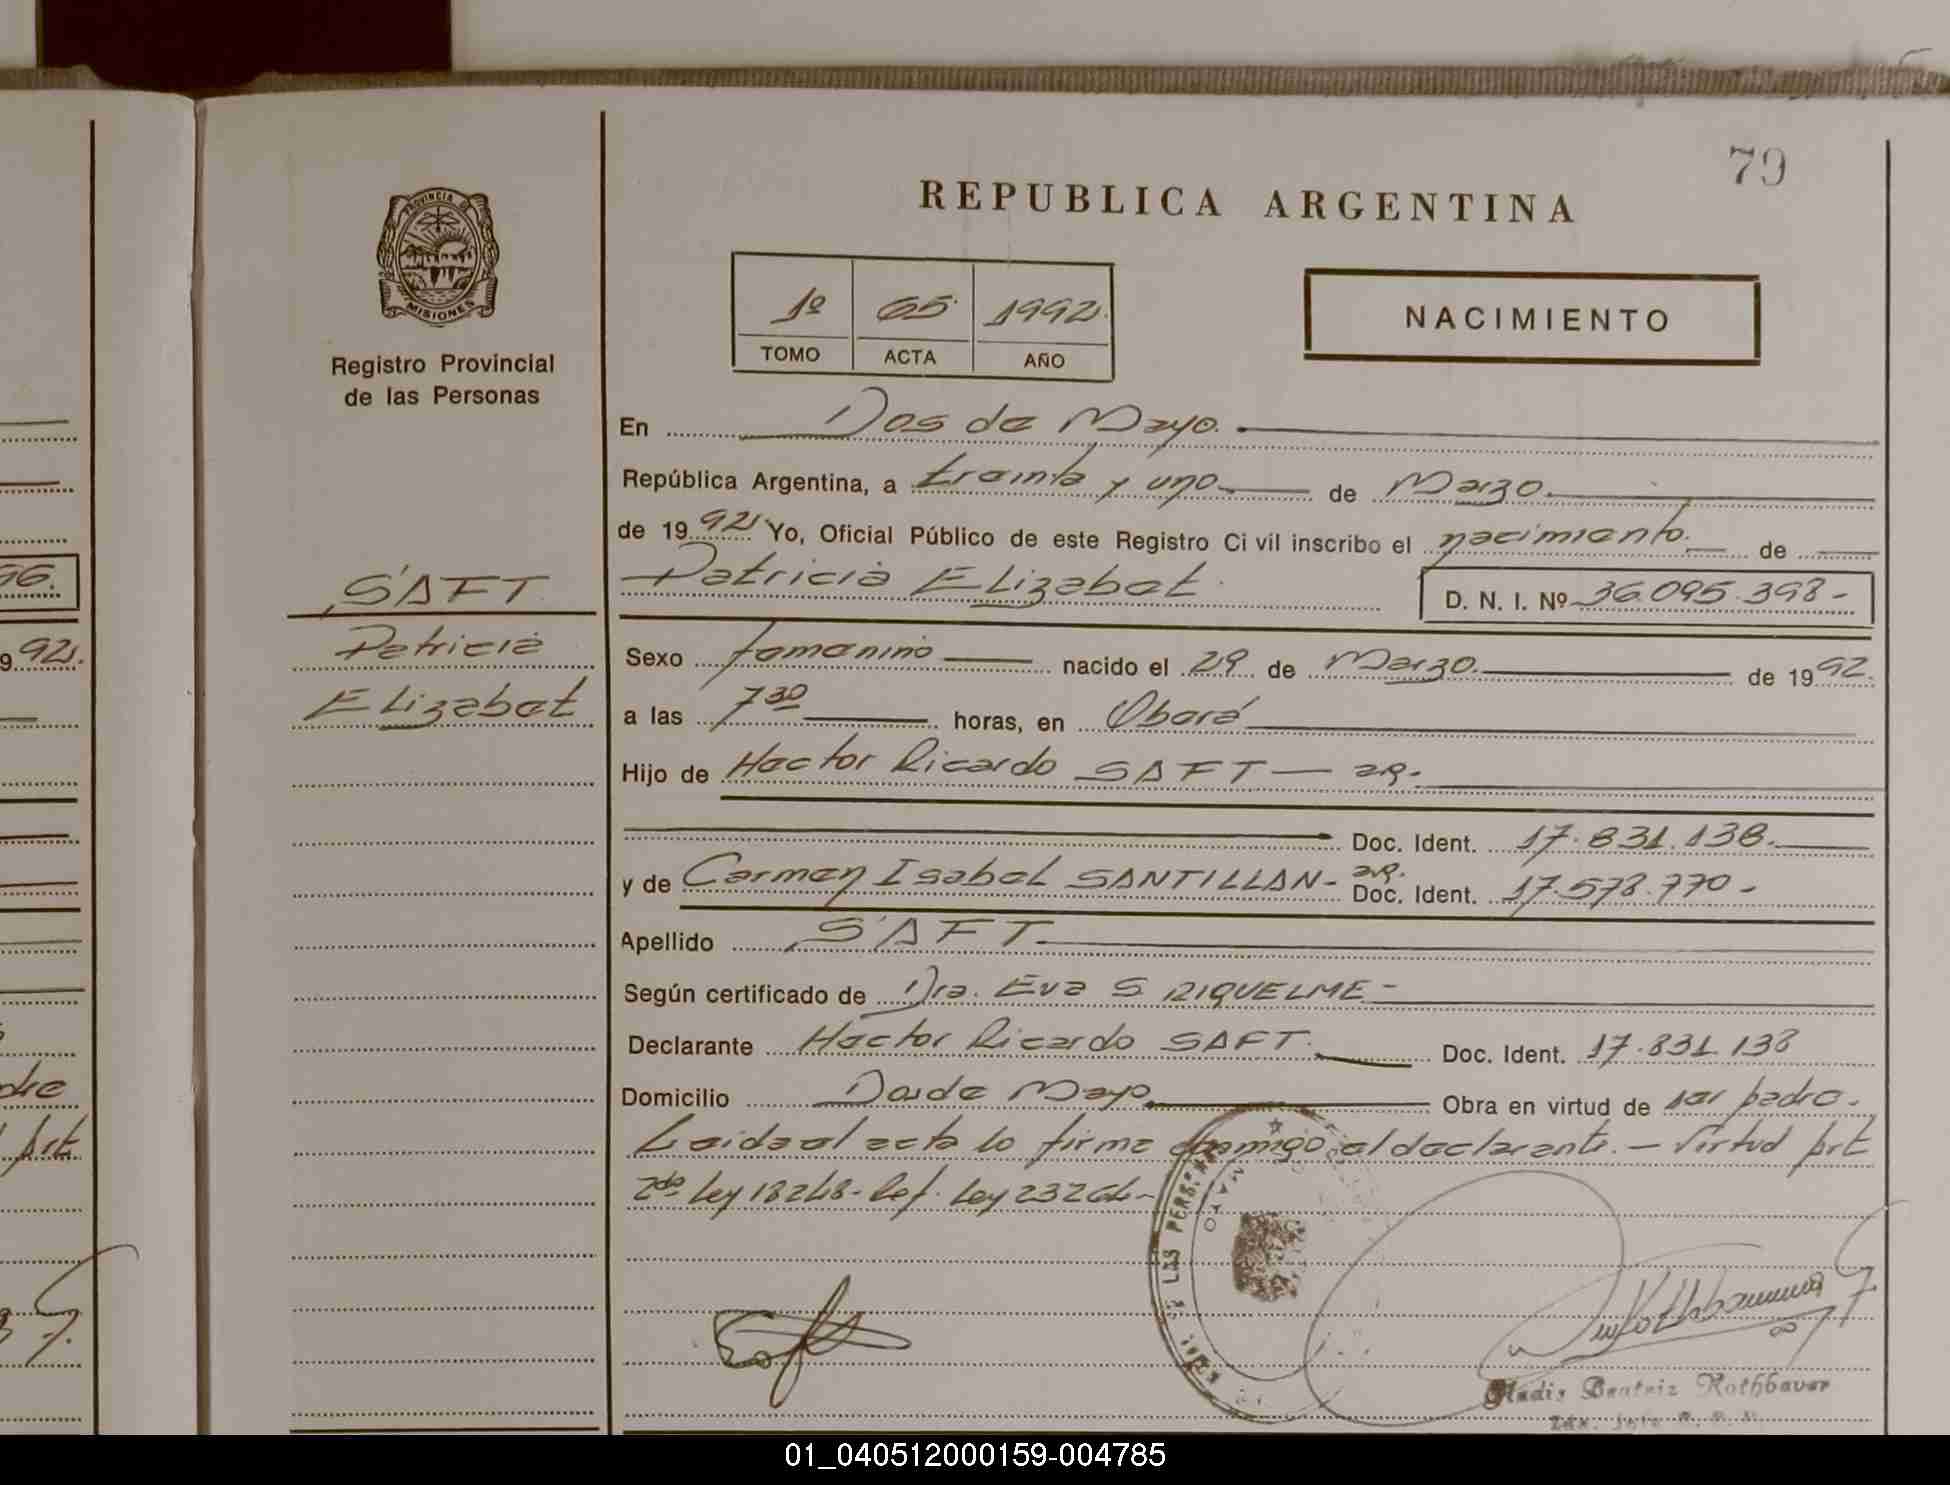 79
REPUBLICA ARGENTINA
PROVINCIA DE
MISIONES
Registro Provincial
de las Personas
1º 65 1992
TOMO ACTA AÑO
NACIMIENTO
En Dos de Mayo.
República Argentina, a treinta y uno de Marzo.
de 1992 Yo, Oficial Público de este Registro Civil inscribo el nacimiento. de
SAFT Patricia Elizabet. D. N. I. Nº 36.095.398-
Patricia
Elizabet
Sexo femenino nacido el 29 de Marzo. de 1992.
a las 7 30 horas, en Oberá
Hijo de Hector Ricardo SAFT - ar.
Doc. Ident. 17.831.138.
y de Carmen Isabel SANTILLAN - ar. Doc. Ident. 17.578.770-
Apellido SAFT
Según certificado de Dra. Eva S. RIQUELME-
Declarante Hector Ricardo SAFT. Doc. Ident. 17.831.138
Domicilio Dos de Mayo Obra en virtud de ser padre.
Leida el acta lo firma conmigo el declarante. - Virtud Art
2do Ley 18248- Ref. Ley 23264-
DE LAS PERS.
MAYO
Gladis Beatriz Rothbauer
01_040512000159-004785